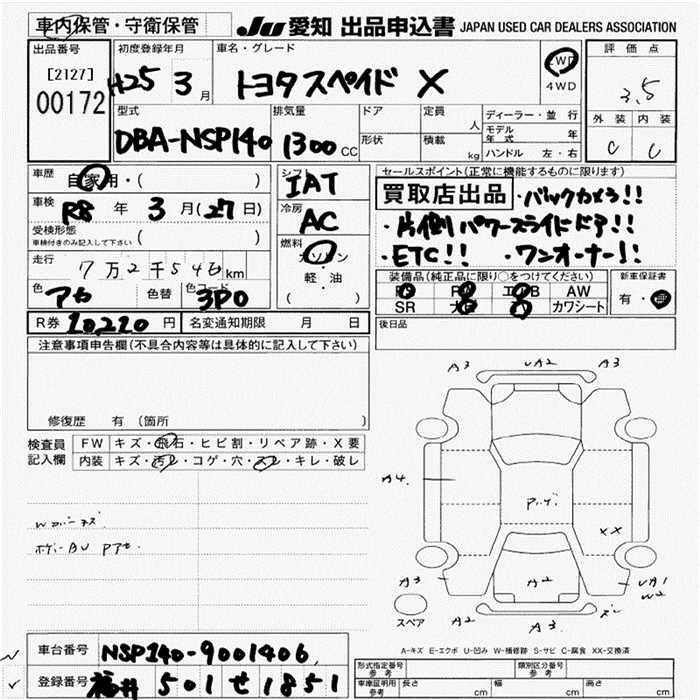 車内保管・守衛保管 JU 愛知 出品申込書 JAPAN USED CAR DEALERS ASSOCIATION
出品番号
[2127]
00172
初度登録年月
H25 3 月
車名・グレード
トヨタ スペイド X
2WD
4WD
評価点
3.5
外装 内装
C C
型式
DBA-NSP140
排気量
1300 CC
ドア
形状
定員
人
積載
kg
ディーラー・並行
モデル年式 年
ハンドル 左・右
車歴
自家用・( )
車検
R8 年 3 月(27日)
受検形態
車検付きのみ記入して下さい ( )
走行
7万2千54 km
色
アカ
色替
色コード
3P0
R券 10,210 円
名変通知期限 月 日
シフト
IAT
冷房
AC
燃料
ガソリン
・
軽・油
( )
セールスポイント(正常に機能するものに限ります)
買取店出品 ・バックカメラ!!
・片側パワースライドドア!!
・ETC!! ・ワンオーナー!!
装備品(純正品に限り○をつけてください)
AW
SR カワシート
新車保証書
有・
後日品
注意事項申告欄(不具合内容等は具体的に記入して下さい)
修復歴 有 (箇所 )
検査員
記入欄
FW キズ・飛石・ヒビ割・リペア跡・X要
内装 キズ・汚レ・コゲ・穴・スレ・キレ・破レ
A3 UA2 A3
A4
XX
A3 A2 UA1
W2
A2 A3
スペア
A-キズ E-エクボ U-凹み W-補修跡 S-サビ C-腐食 XX-交換済
車台番号 NSP140-9001406
登録番号 福井 501 せ 1851
形式指定番号
参考
類別区分番号
参考
車庫証明用
参考
長さ cm 幅 cm 高さ cm